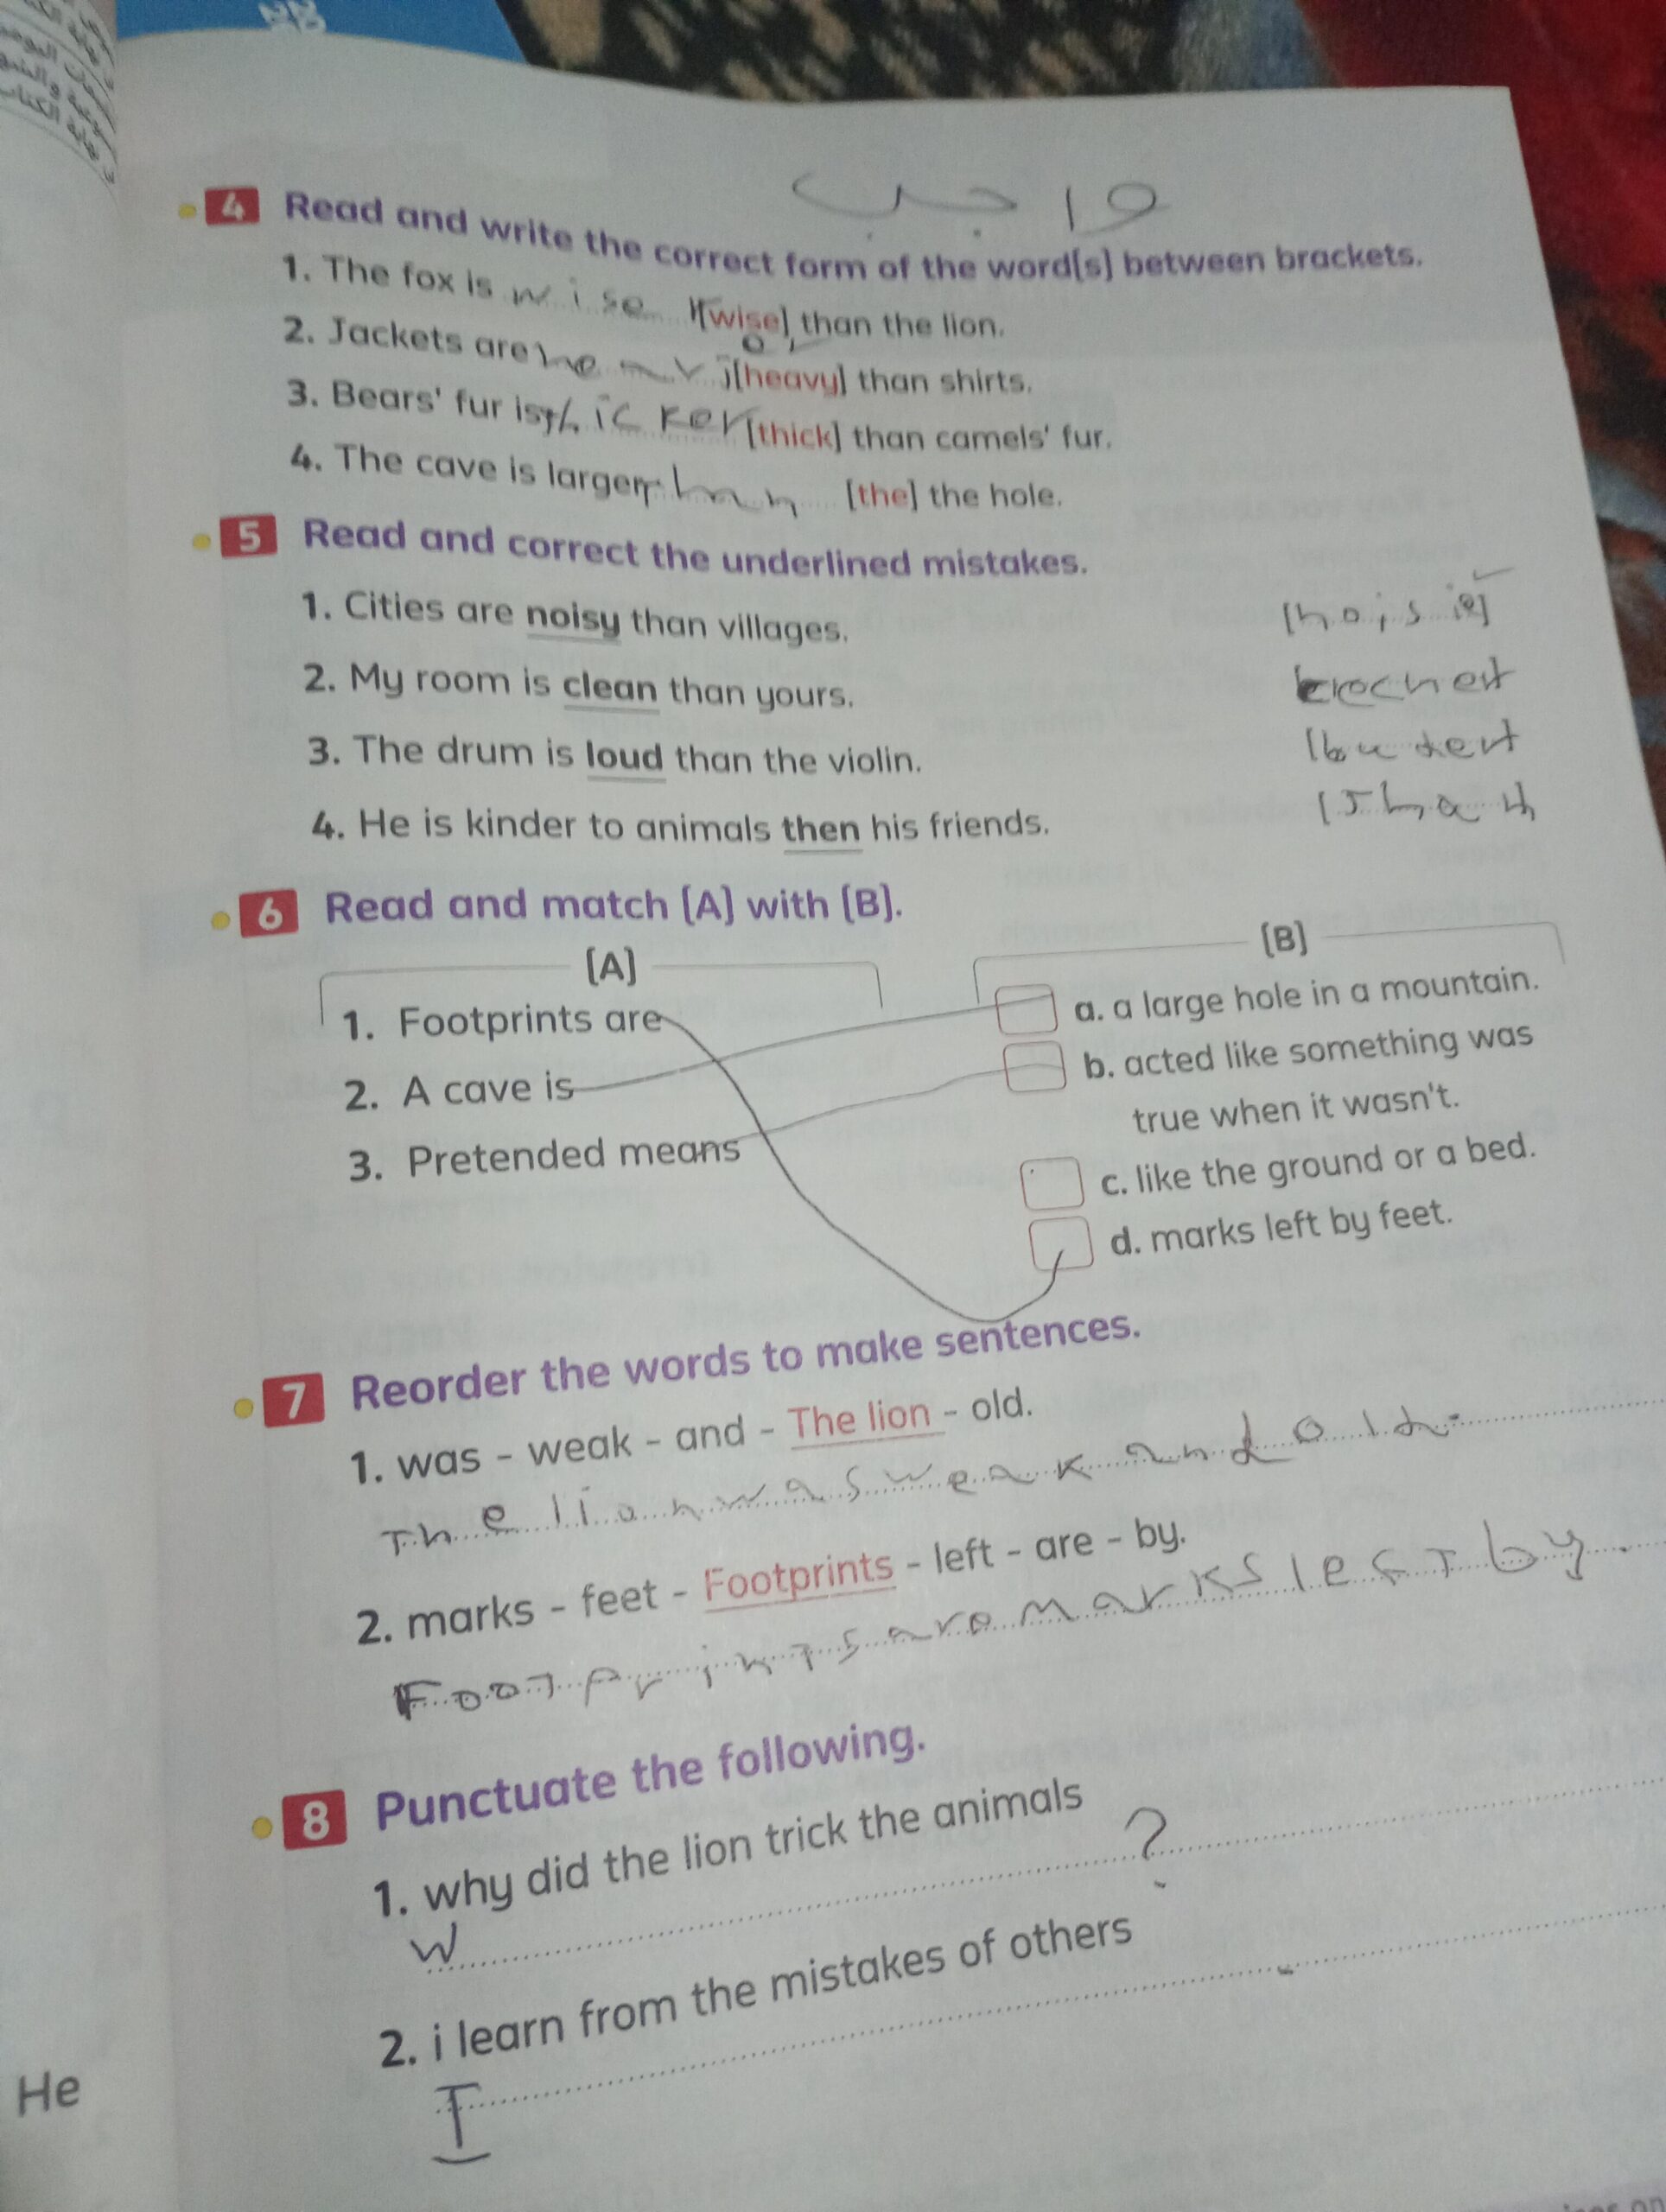 واجب
4 Read and write the correct form of the word(s) between brackets.
1. The fox is wise r [wise] than the lion.
2. Jackets are [heavy] than shirts.
3. Bears' fur is thicker [thick] than camels' fur.
4. The cave is larger than [the] the hole.
5 Read and correct the underlined mistakes.
1. Cities are noisy than villages. [
2. My room is clean than yours.
3. The drum is loud than the violin. [
4. He is kinder to animals then his friends. [Than
6 Read and match (A) with (B).
(A)
1. Footprints are
2. A cave is
3. Pretended means
(B)
a. a large hole in a mountain.
b. acted like something was
true when it wasn't.
c. like the ground or a bed.
d. marks left by feet.
7 Reorder the words to make sentences.
1. was - weak - and - The lion - old.
The lion was weak and old.
2. marks - feet - Footprints - left - are - by.
Footprints are marks left by.
8 Punctuate the following.
1. why did the lion trick the animals
W ?
2. i learn from the mistakes of others
I .
He